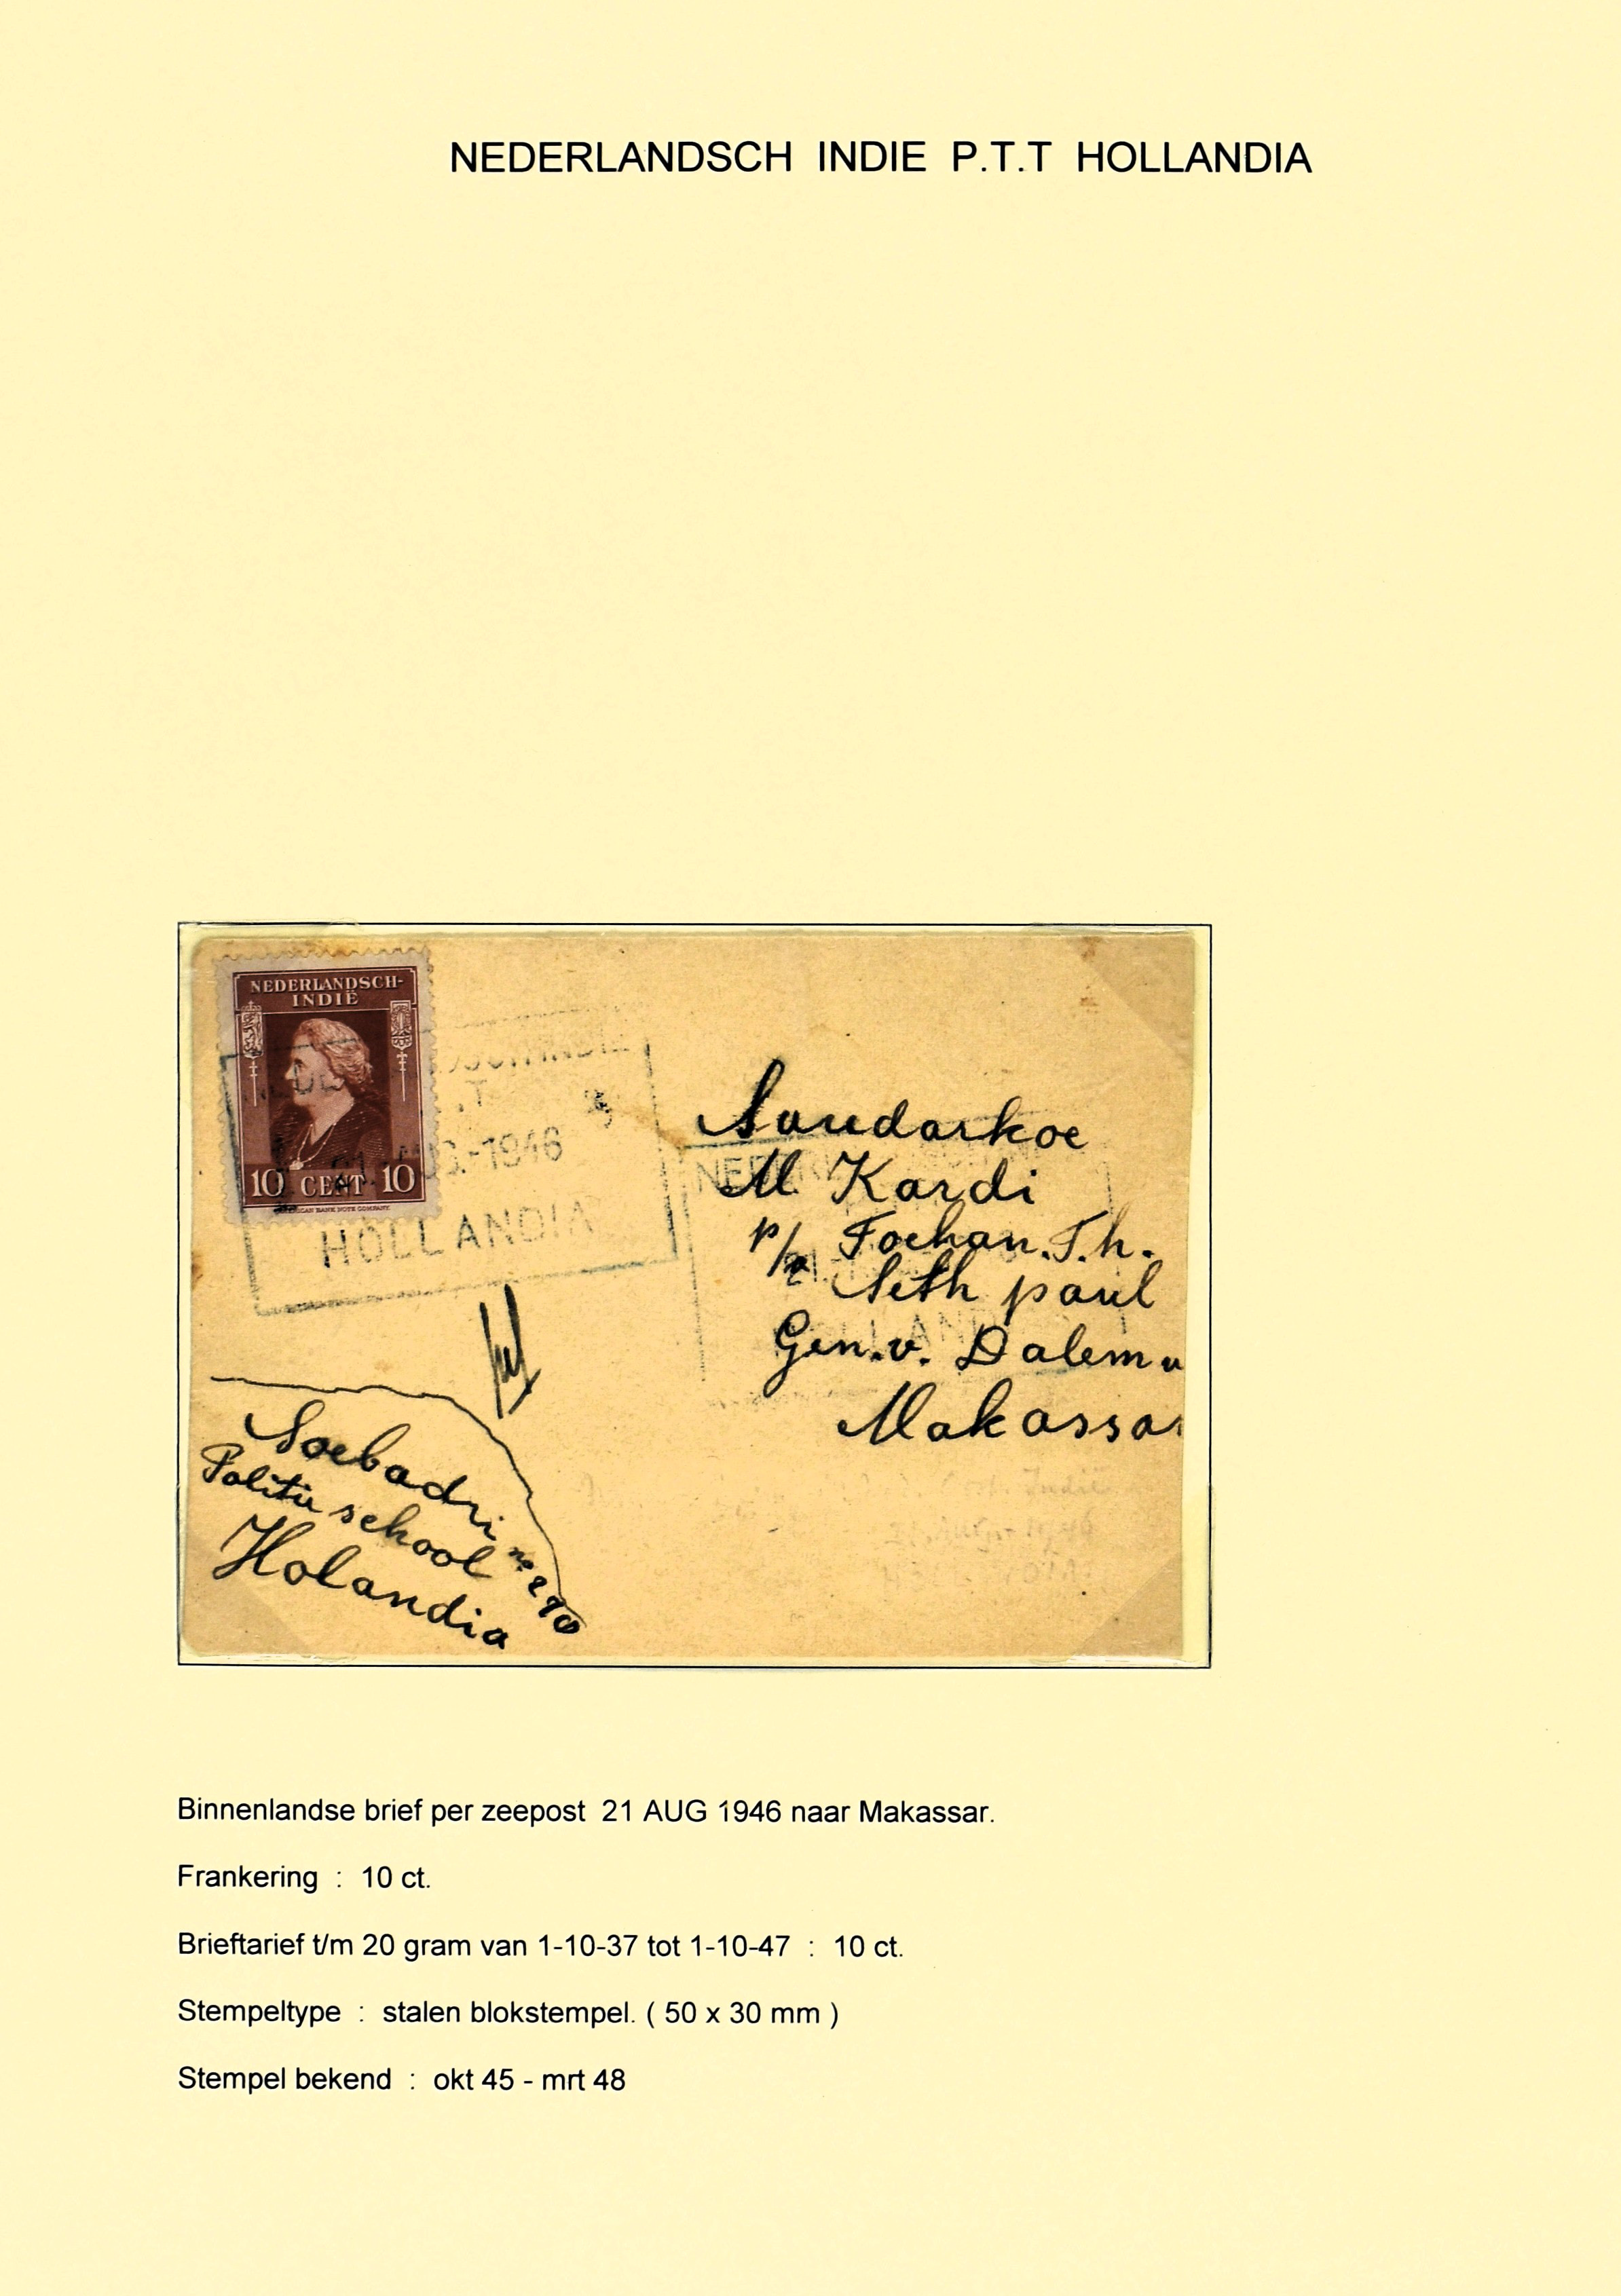 NEDERLANDSCH INDIE P.T.T HOLLANDIA
NEDERLANDSCH-
INDIË
10 CENT 10
21. AUG.-1946
HOLLANDIA
Soedarkoe
M Kardi
p/a Toehan. T.h.
Seth paul
Gen. v. Dalem
Makassar
Soebadri no
Politie school
Holandia
Binnenlandse brief per zeepost 21 AUG 1946 naar Makassar.
Frankering : 10 ct.
Brieftarief t/m 20 gram van 1-10-37 tot 1-10-47 : 10 ct.
Stempeltype : stalen blokstempel. ( 50 x 30 mm )
Stempel bekend : okt 45 - mrt 48